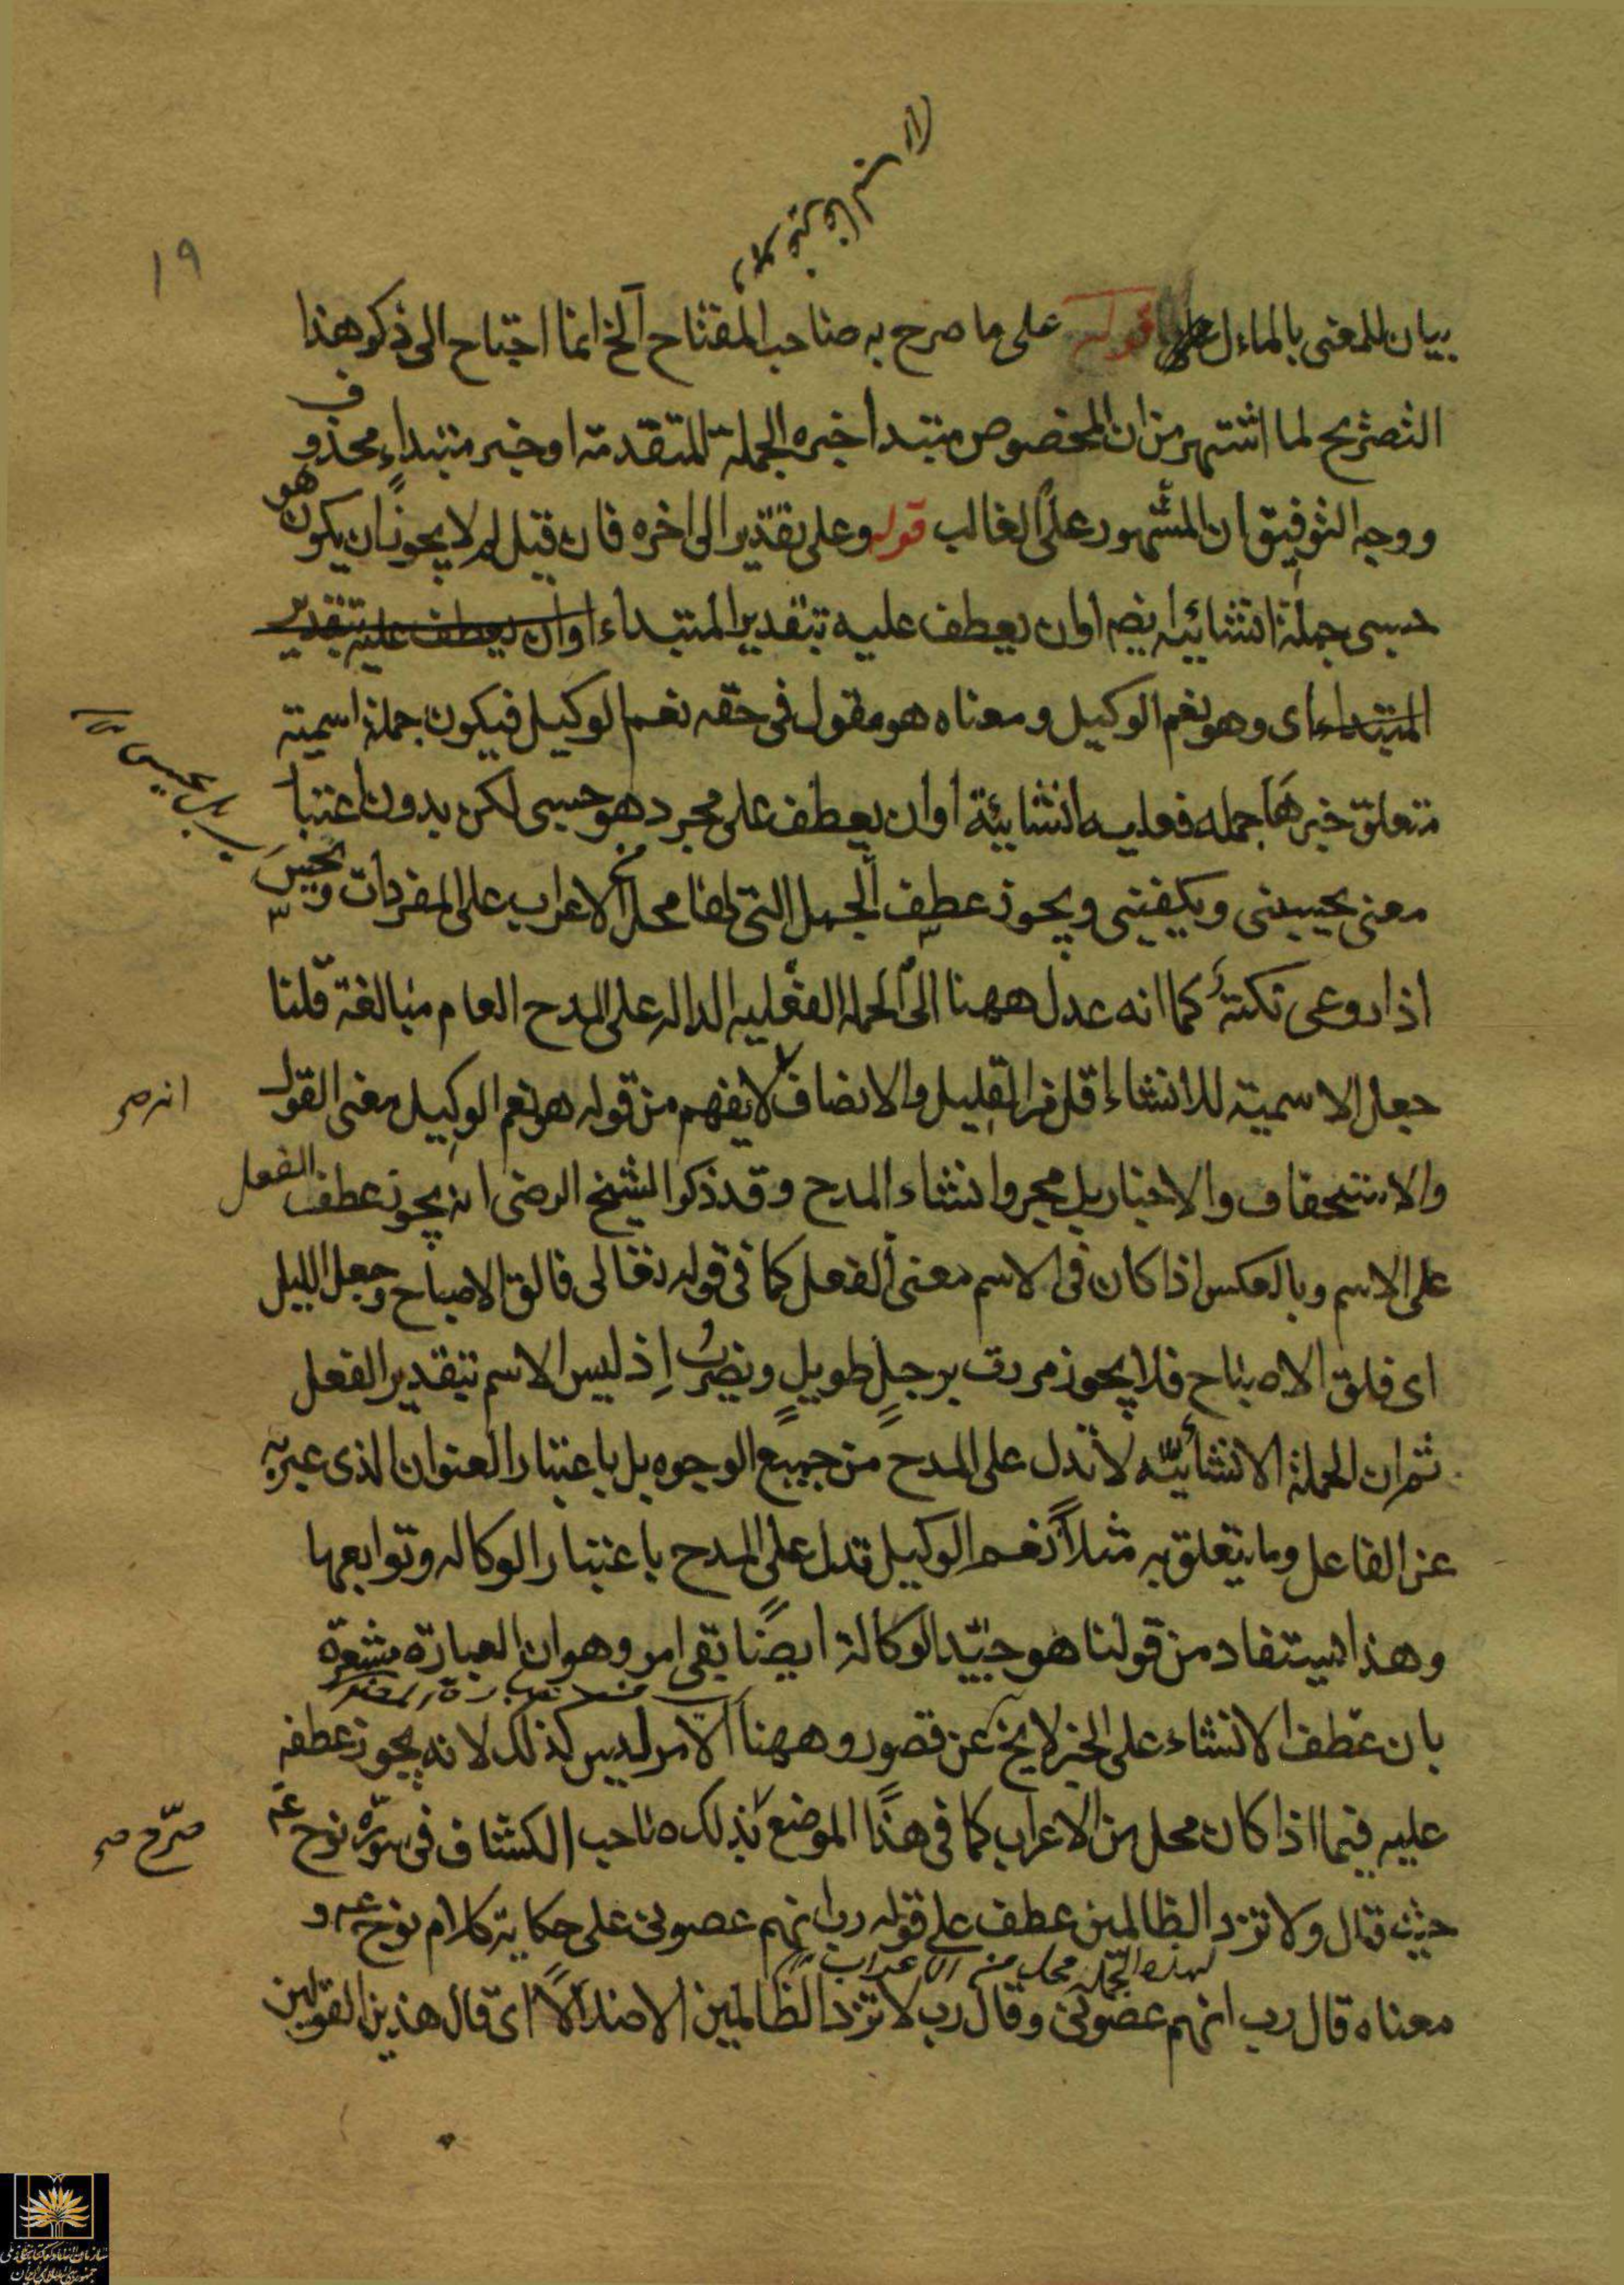 ١٩
بيان للمعنى بالماءل قوله على ما صرح به صاحب المفتاح آلخ انما احتاح الى ذكر هذا
التصريح لما اشتهر من ان المخصوص مبتدا خبره الجملة المتقدمة او خبر مبتداء محذوف
ووجه التوفيق ان المشهور على الغالب قوله وعلى تقدير الى اخره فان قيل لم لا يجوز ان يكون هو
حسبى جملة انشائيه ايضا او ان يعطف عليه بتقدير المبتداء او ان يعطف عليه بتقدير
المبتداء اى وهو نعم الوكيل ومعناه هو مقول فى حقه نعم الوكيل فيكون جملة اسمية
متعلق خبرها جمله فعليه انشائية او ان يعطف على مجرد هو حسبى لكن بدون اعتبا
معنى يحسبنى ويكفينى ويجوز عطف الجمل التى لها محل الاعراب على المفردات ويحسن
اذا روعى نكتة كما انه عدل ههنا الى الجمله الفعليه الداله على المدح العام مبالغة قلنا
جعل الاسمية للانشاء اقل من القليل والانصاف لا يفهم من قوله هو نعم الوكيل معنى القول
انه صح
والاستحقاف والاخبار بل مجرد انشاء المدح وقد ذكر الشيخ الرضى انه يجوز عطف الفعل
على الاسم وبالعكس اذا كان فى الاسم معنى الفعل كما فى قوله تعالى فالق الاصباح وجعل الليل
اى فلق الاصباح فلا يجوز مررت برجلٍ طويلٍ ويضربُ اِذ ليس الاسم بتقدير الفعل
ثم ان الجملة الانشائيّه لا تدل على المدح من جميع الوجوه بل باعتبار العنوان الذى عبر به
عن الفاعل وما يتعلق به مثلاً نعم الوكيل تدل على المدح باعتبار الوكاله وتوابعها
وهذا يستفاد من قولنا هو جيّد الوكالة ايضًا بقى امر وهو ان العبارة مشعرة
بان عطف الانشاء على الخبر لا يخ عن قصور وههنا الامر ليس كذلك لانه يجوز عطفه
عليه فيما اذا كان محل من الاعراب كما فى هذا الموضع بذلك صاحب الكشاف فى سورة نوح عم
صرّح صح
حيث قال ولا تزد الظالمين عطف على قوله رب انهم عصونى على حكاية كلام نوح عم و
لهذه الجمله محل من الاعراب
معناه قال رب انهم عصونى وقال رب لا تزد الظالمين الا ضلالاً اى قال هذين القولين